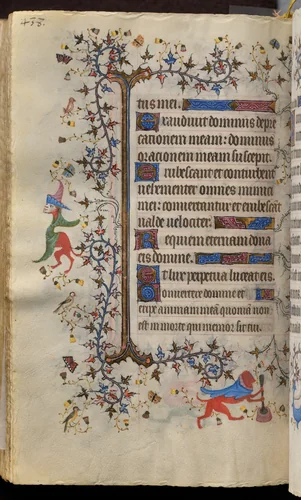 tus mei.
Exaudiuit dominus depre
cationem meam: dominus
orationem meam suscepit.
Erubescant et conturbent
uehementer omnes inimici
mei: conuertantur et erubescāt
ualde uelociter.
Requiem eternam dona
eis domine.
Et lux perpetua luceat eis.
Conuertere domine et
eripe animam meā quoniā non
est in morte qui memor sit tui.